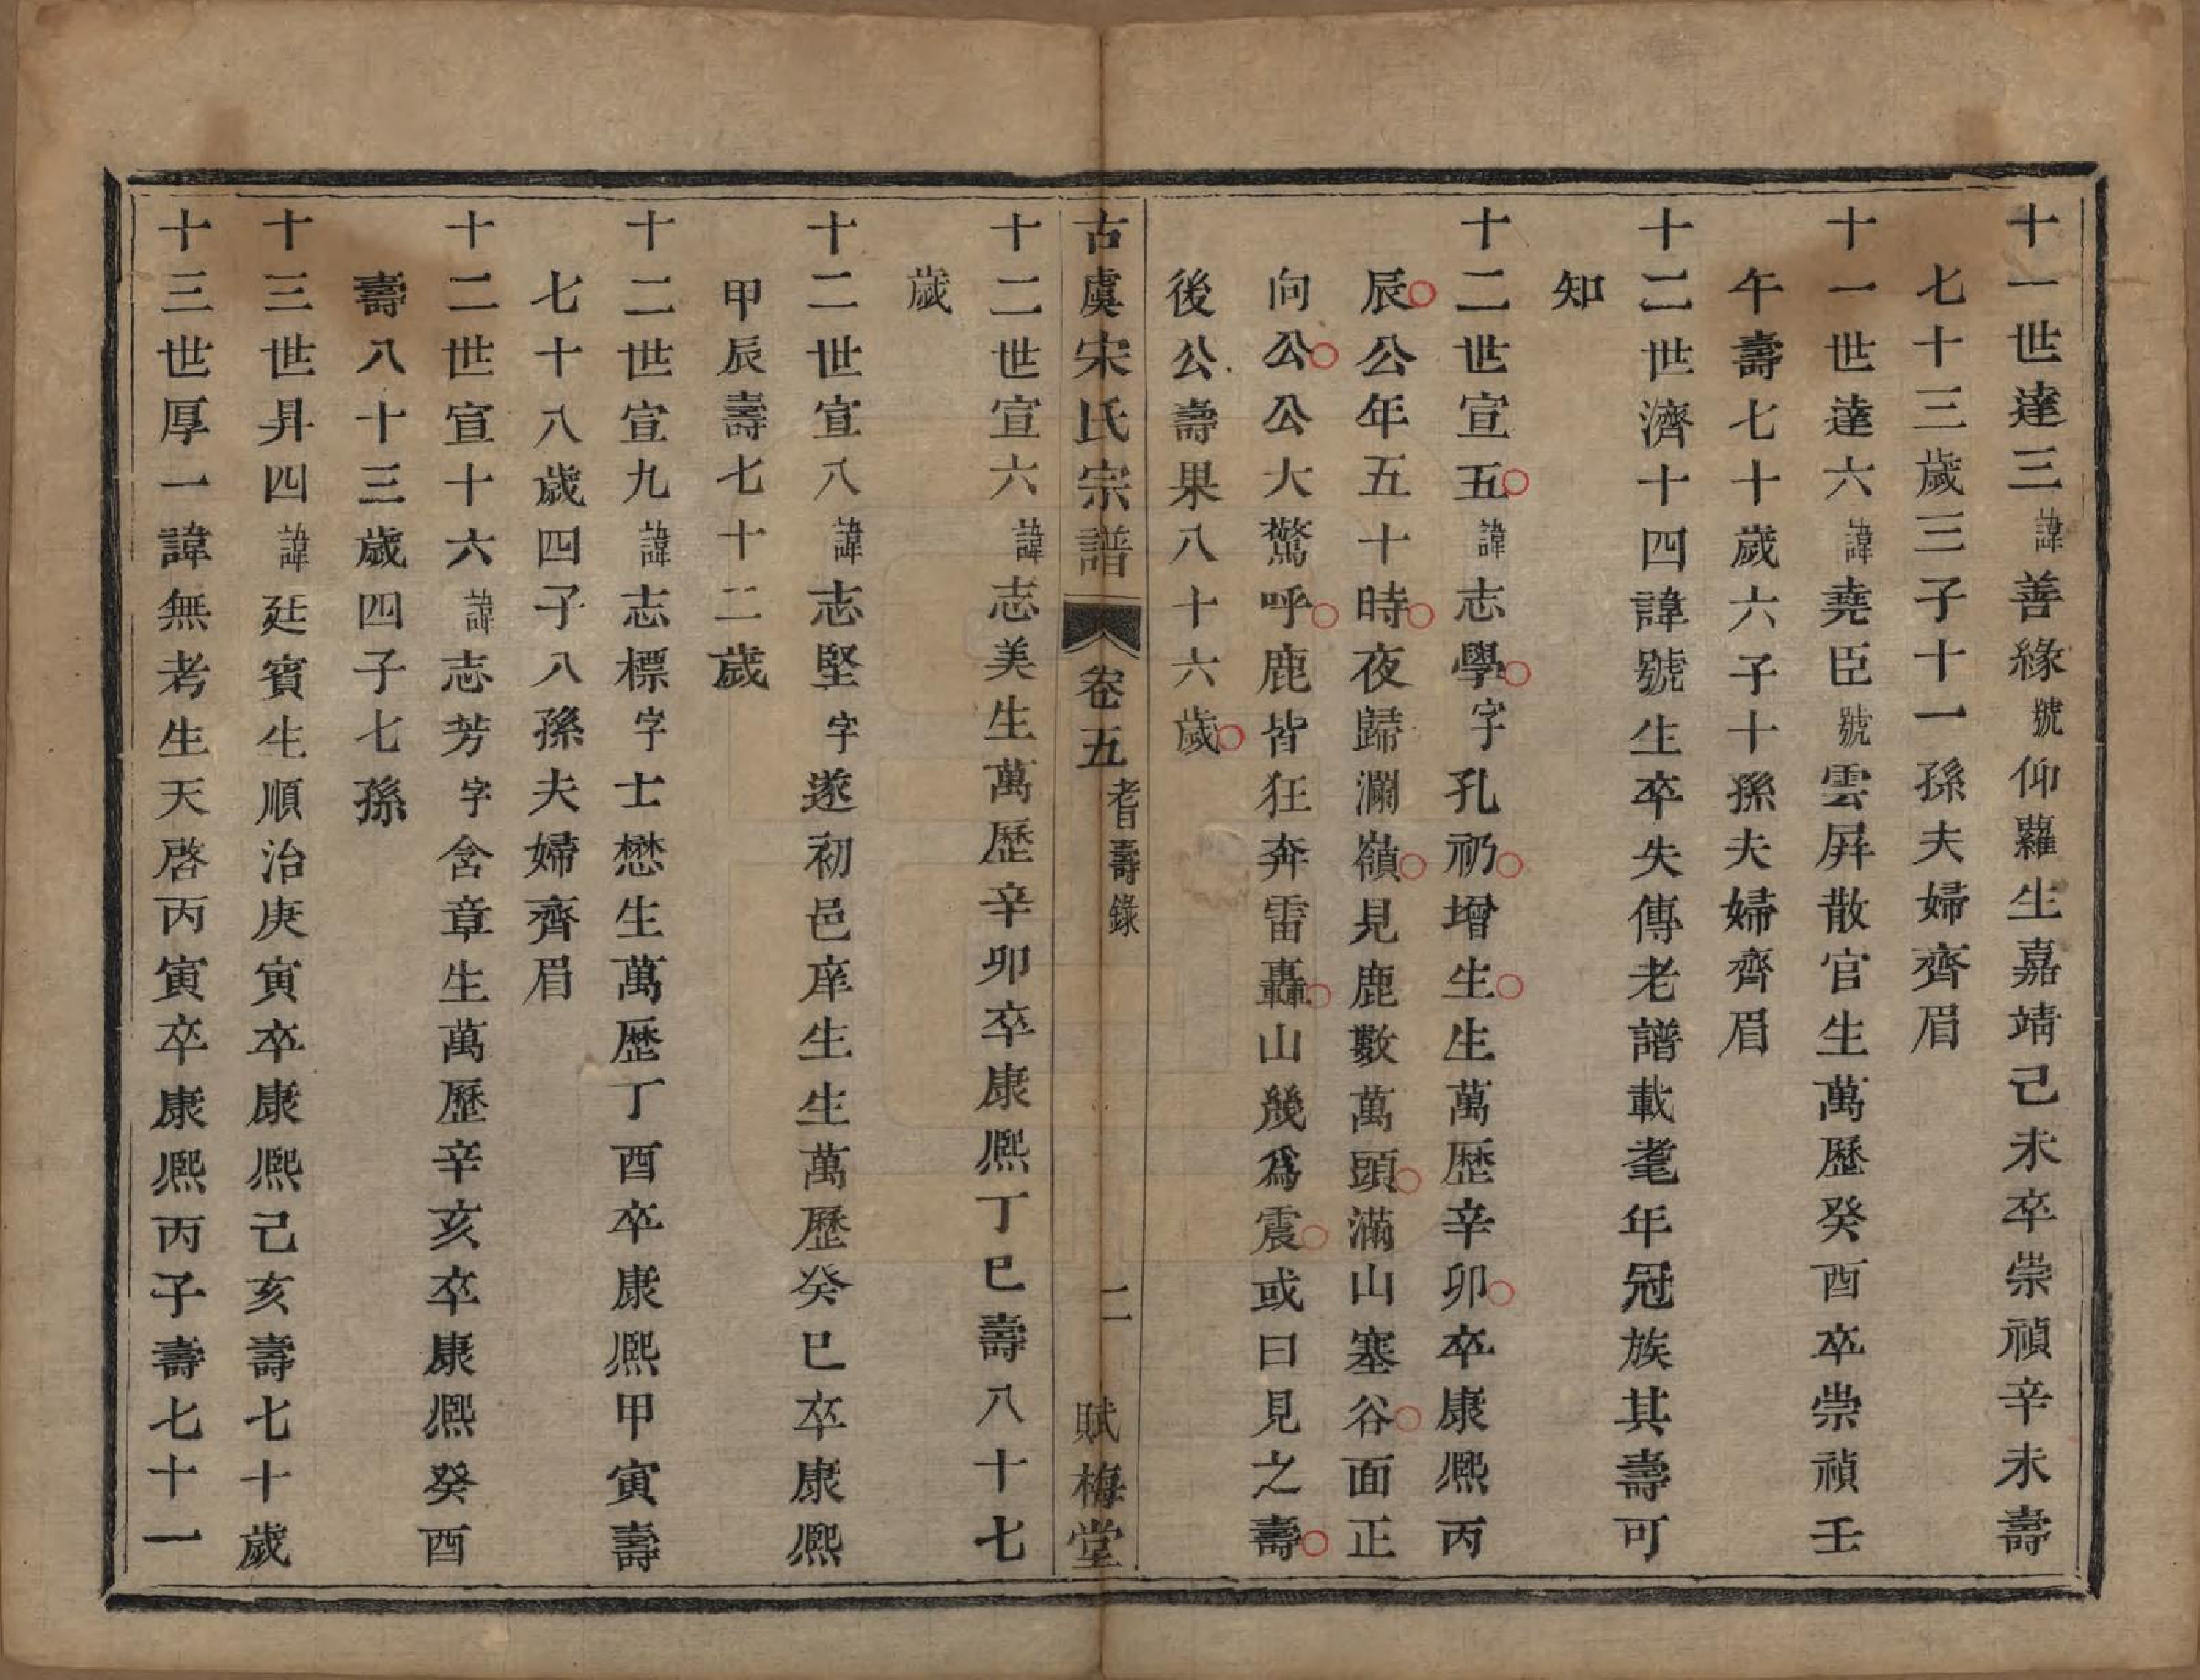 十一世達三諱善緣號仰蘿生嘉靖己未卒崇禎辛未壽
七十三歲三子十一孫夫婦齊眉
十一世達六諱堯臣號雲屏散官生萬歷癸酉卒崇禎壬
午壽七十歲六子十孫夫婦齊眉
十二世濟十四諱號生卒失傳老譜載耄年冠族其壽可
知
十二世宣五諱志學字孔礽增生生萬歷辛卯卒康熙丙
辰公年五十時夜歸瀾嶺見鹿數萬頭滿山塞谷面正
向公公大驚呼鹿皆狂奔雷轟山幾爲震或曰見之壽
後公壽果八十六歲
古虞宋氏宗譜 卷五 耆壽錄 二 賦梅堂
十二世宣六諱志美生萬歷辛卯卒康熙丁巳壽八十七
歲
十二世宣八諱志堅字遂初邑庠生生萬歷癸巳卒康熙
甲辰壽七十二歲
十二世宣九諱志標字士懋生萬歷丁酉卒康熙甲寅壽
七十八歲四子八孫夫婦齊眉
十二世宣十六諱志芳字含章生萬歷辛亥卒康熙癸酉
壽八十三歲四子七孫
十三世昇四諱廷賓生順治庚寅卒康熙己亥壽七十歲
十三世厚一諱無考生天啓丙寅卒康熙丙子壽七十一